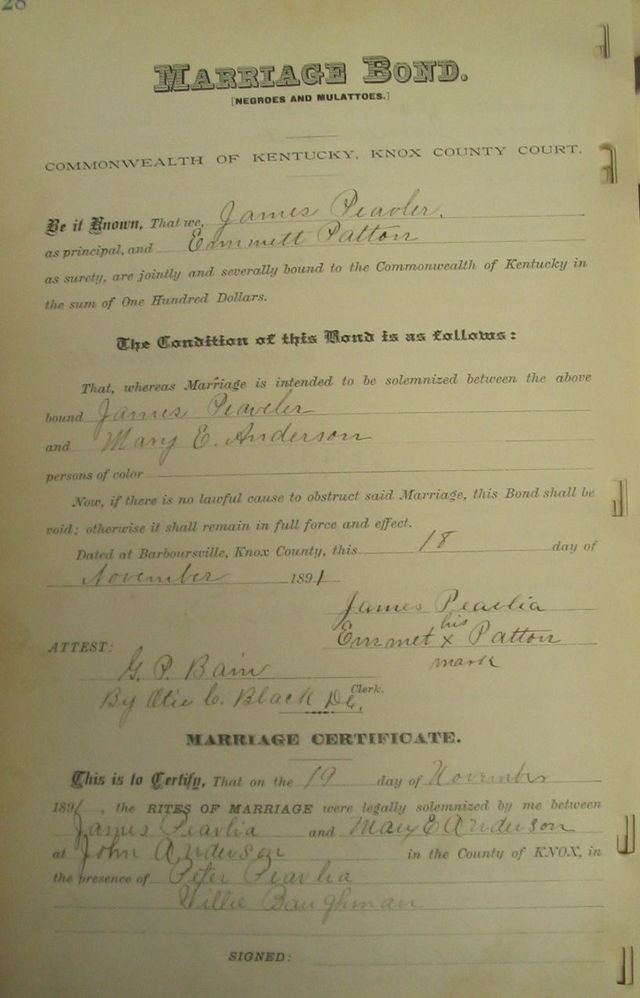 28
MARRIAGE BOND.
[NEGROES AND MULATTOES.]
COMMONWEALTH OF KENTUCKY, KNOX COUNTY COURT.
Be it Known, That we, James Peavler,
as principal, and Emmett Patton
as surety, are jointly and severally bound to the Commonwealth of Kentucky in
the sum of One Hundred Dollars.
The Condition of this Bond is as follows:
That, whereas Marriage is intended to be solemnized between the above
bound James Peaveler
and Mary E. Anderson
persons of color
Now, if there is no lawful cause to obstruct said Marriage, this Bond shall be
void; otherwise it shall remain in full force and effect.
Dated at Barboursville, Knox County, this 18 day of
November 1891
James Peavlia
Emmet his x mark Patton
ATTEST:
G. P. Bain
Clerk.
By Otie C. Black D.C.
MARRIAGE CERTIFICATE.
This is to Certify, That on the 19 day of November
1891, the RITES OF MARRIAGE were legally solemnized by me between
James Peavlia and Mary E Anderson
at John Anderson in the County of KNOX, in
the presence of Peter Peavlia
Willie Baughman
SIGNED: